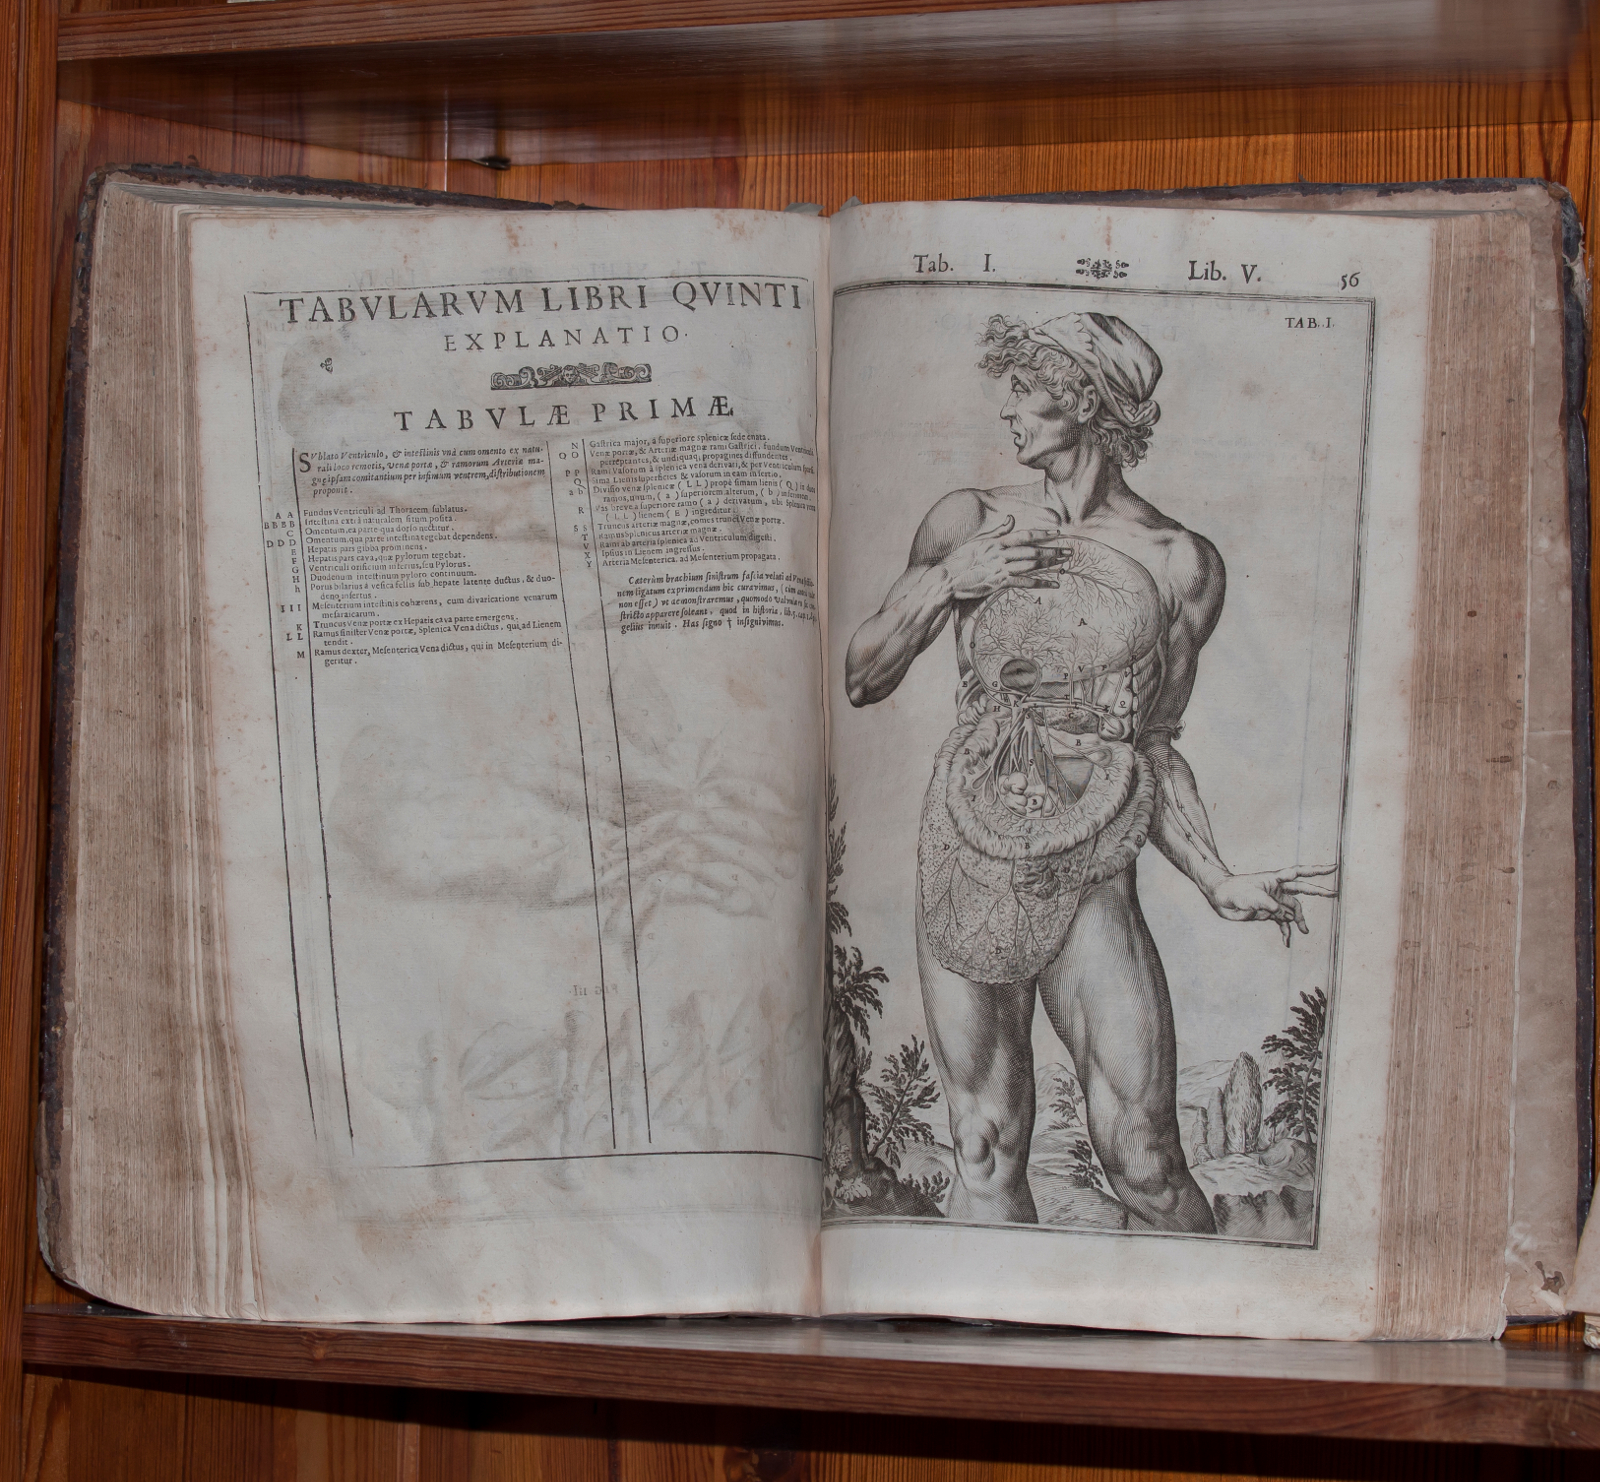 TABVLARVM LIBRI QVINTI
EXPLANATIO.
TABVLÆ PRIMÆ
SVblato Ventriculo, & inteſtinis vnà cum omento ex natu-
rali loco remotis, venæ portæ, & ramorum Arteriæ ma-
gnę ipſam comitantium per infimum ventrem, diſtributionem
proponit.
A A Fundus Ventriculi ad Thoracem ſublatus.
BBBB Inteſtina extrà naturalem ſitum poſita.
C Omentum, ea parte qua dorſo nectitur.
D D D Omentum, qua parte inteſtina tegebat dependens.
E Hepatis pars gibba prominens.
F Hepatis pars cava, quæ pylorum tegebat.
G Ventriculi orificium inferius, ſeu Pylorus.
H Duodenum inteſtinum pyloro continuum.
h Porus bilarius à veſica fellis ſub hepate latente ductus, & duo-
deno inſertus.
I I I Meſenterium inteſtinis cohærens, cum divaricatione venarum
meſaraicarum.
K Truncus venæ portæ ex Hepatis cava parte emergens.
L L Ramus ſiniſter Venæ portæ, Splenica Vena dictus, qui ad Lienem
tendit.
M Ramus dexter, Meſenterica Vena dictus, qui in Meſenterium di-
geritur.
N Gaſtrica major, à ſuperiore ſplenicæ ſede enata.
O O Venæ portæ, & Arteriæ magnæ rami Gaſtrici, fundum Ventriculi
perreptantes, & undiquaq; propagines diffundentes.
P P Rami Vaſorum à ſplenica vena derivati, & per Ventriculum
Q Sima Lienis ſuperficies & vaſorum in eam inſertio.
a b Diviſio venæ ſplenicæ ( L L ) propè ſimam lienis ( Q ) in duos
ramos, unum, ( a ) ſuperiorem, alterum, ( b ) inferiorem.
R Vas breve à ſuperiore ramo ( a ) derivatum, ubi Splenica
( L L ) lienem ( E ) ingreditur.
S S Truncus arteriæ magnæ, comes trunci Venæ portæ.
T Ramus Splenicus arteriæ magnæ.
V Rami ab arteria ſplenica ad Ventriculum digeſti.
X Ipſius in Lienem ingreſſus.
Y Arteria Meſenterica, ad Meſenterium propagata.
Cæterùm brachium ſiniſtrum faſcia veluti ad
nem ligatum exprimendum hîc curavimus,
non eſſet ) vt demonſtraremus, quomodo Valvulæ
ſtricto apparere ſoleant, quod in hiſtoria, lib. 5. cap.
gelius innuit. Has ſigno † inſignivimus.
Tab. I. Lib. V. 56
TAB. I.